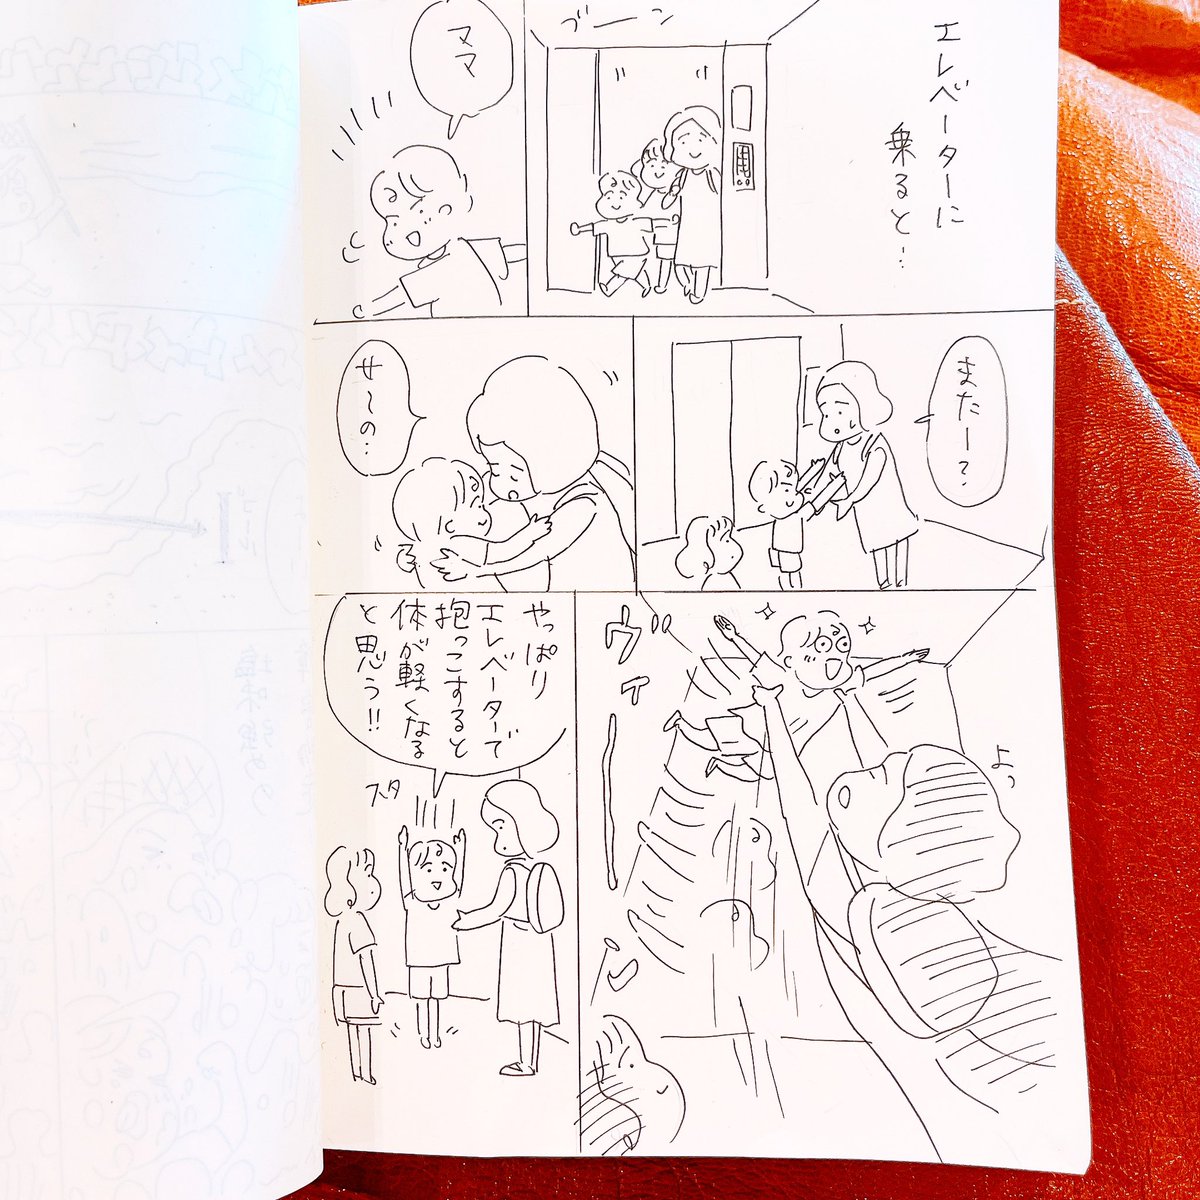 エレベーターに
乗ると…
ブーン
ママ
またー？
せ〜の…
ヴィーン
よっ
やっぱり
エレベーターで
抱っこすると
体が軽くなる
と思う!!
スタ